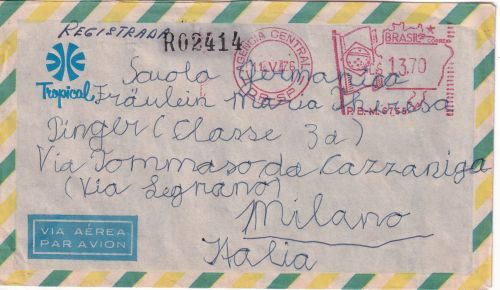 REGISTRADA
R02414
AGENCIA CENTRAL
11.VI.76
BRASIL CORREIO
13,70
P.B.M. 6755
Tropical
Scuola Germanica
Fräulein Maria Theresa
Pinger (Classe 3a)
Via Tommaso da Cazzaniga
(Via Legnano)
Milano
Italia
VIA AÉREA
PAR AVION